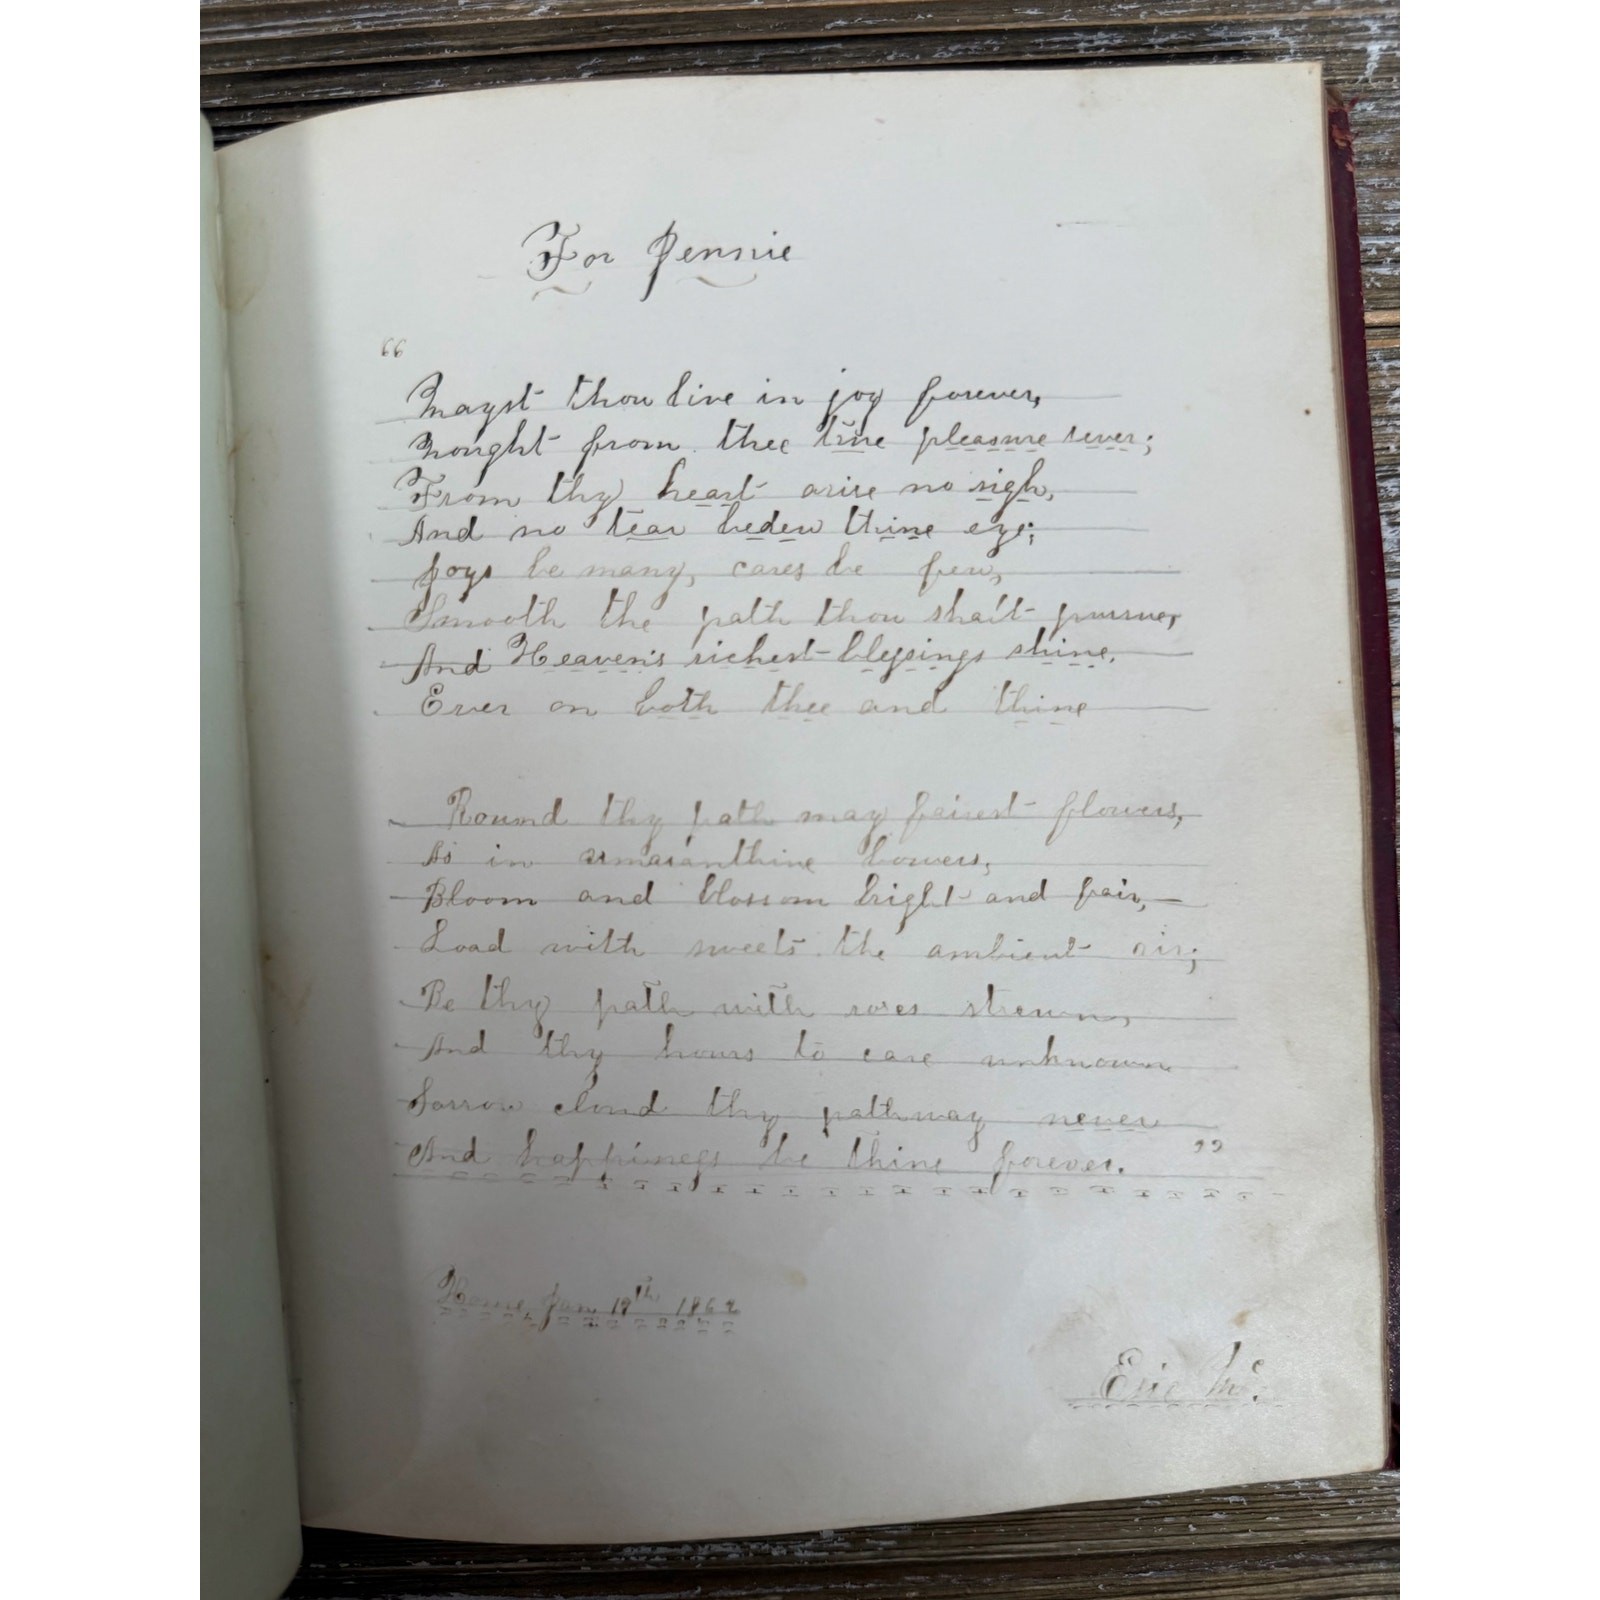 For Jennie
"
Mayst thou live in joy forever,
Nought from thee true pleasure sever;
From thy heart arise no sigh,
And no tear bedew thine eye;
Joys be many, cares be few,
Smooth the path thou shalt pursue,
And Heaven's richest blessings shine,
Ever on both thee and thine
Round thy path may fairest flowers,
As in amaranthine bowers,
Bloom and blossom bright and fair,—
Load with sweets the ambient air;
Be thy path with roses strewn,
And thy hours to care unknown
Sorrow cloud thy pathway never
And happiness be thine forever. "
Home, Jan. 19th 1862
Mc.